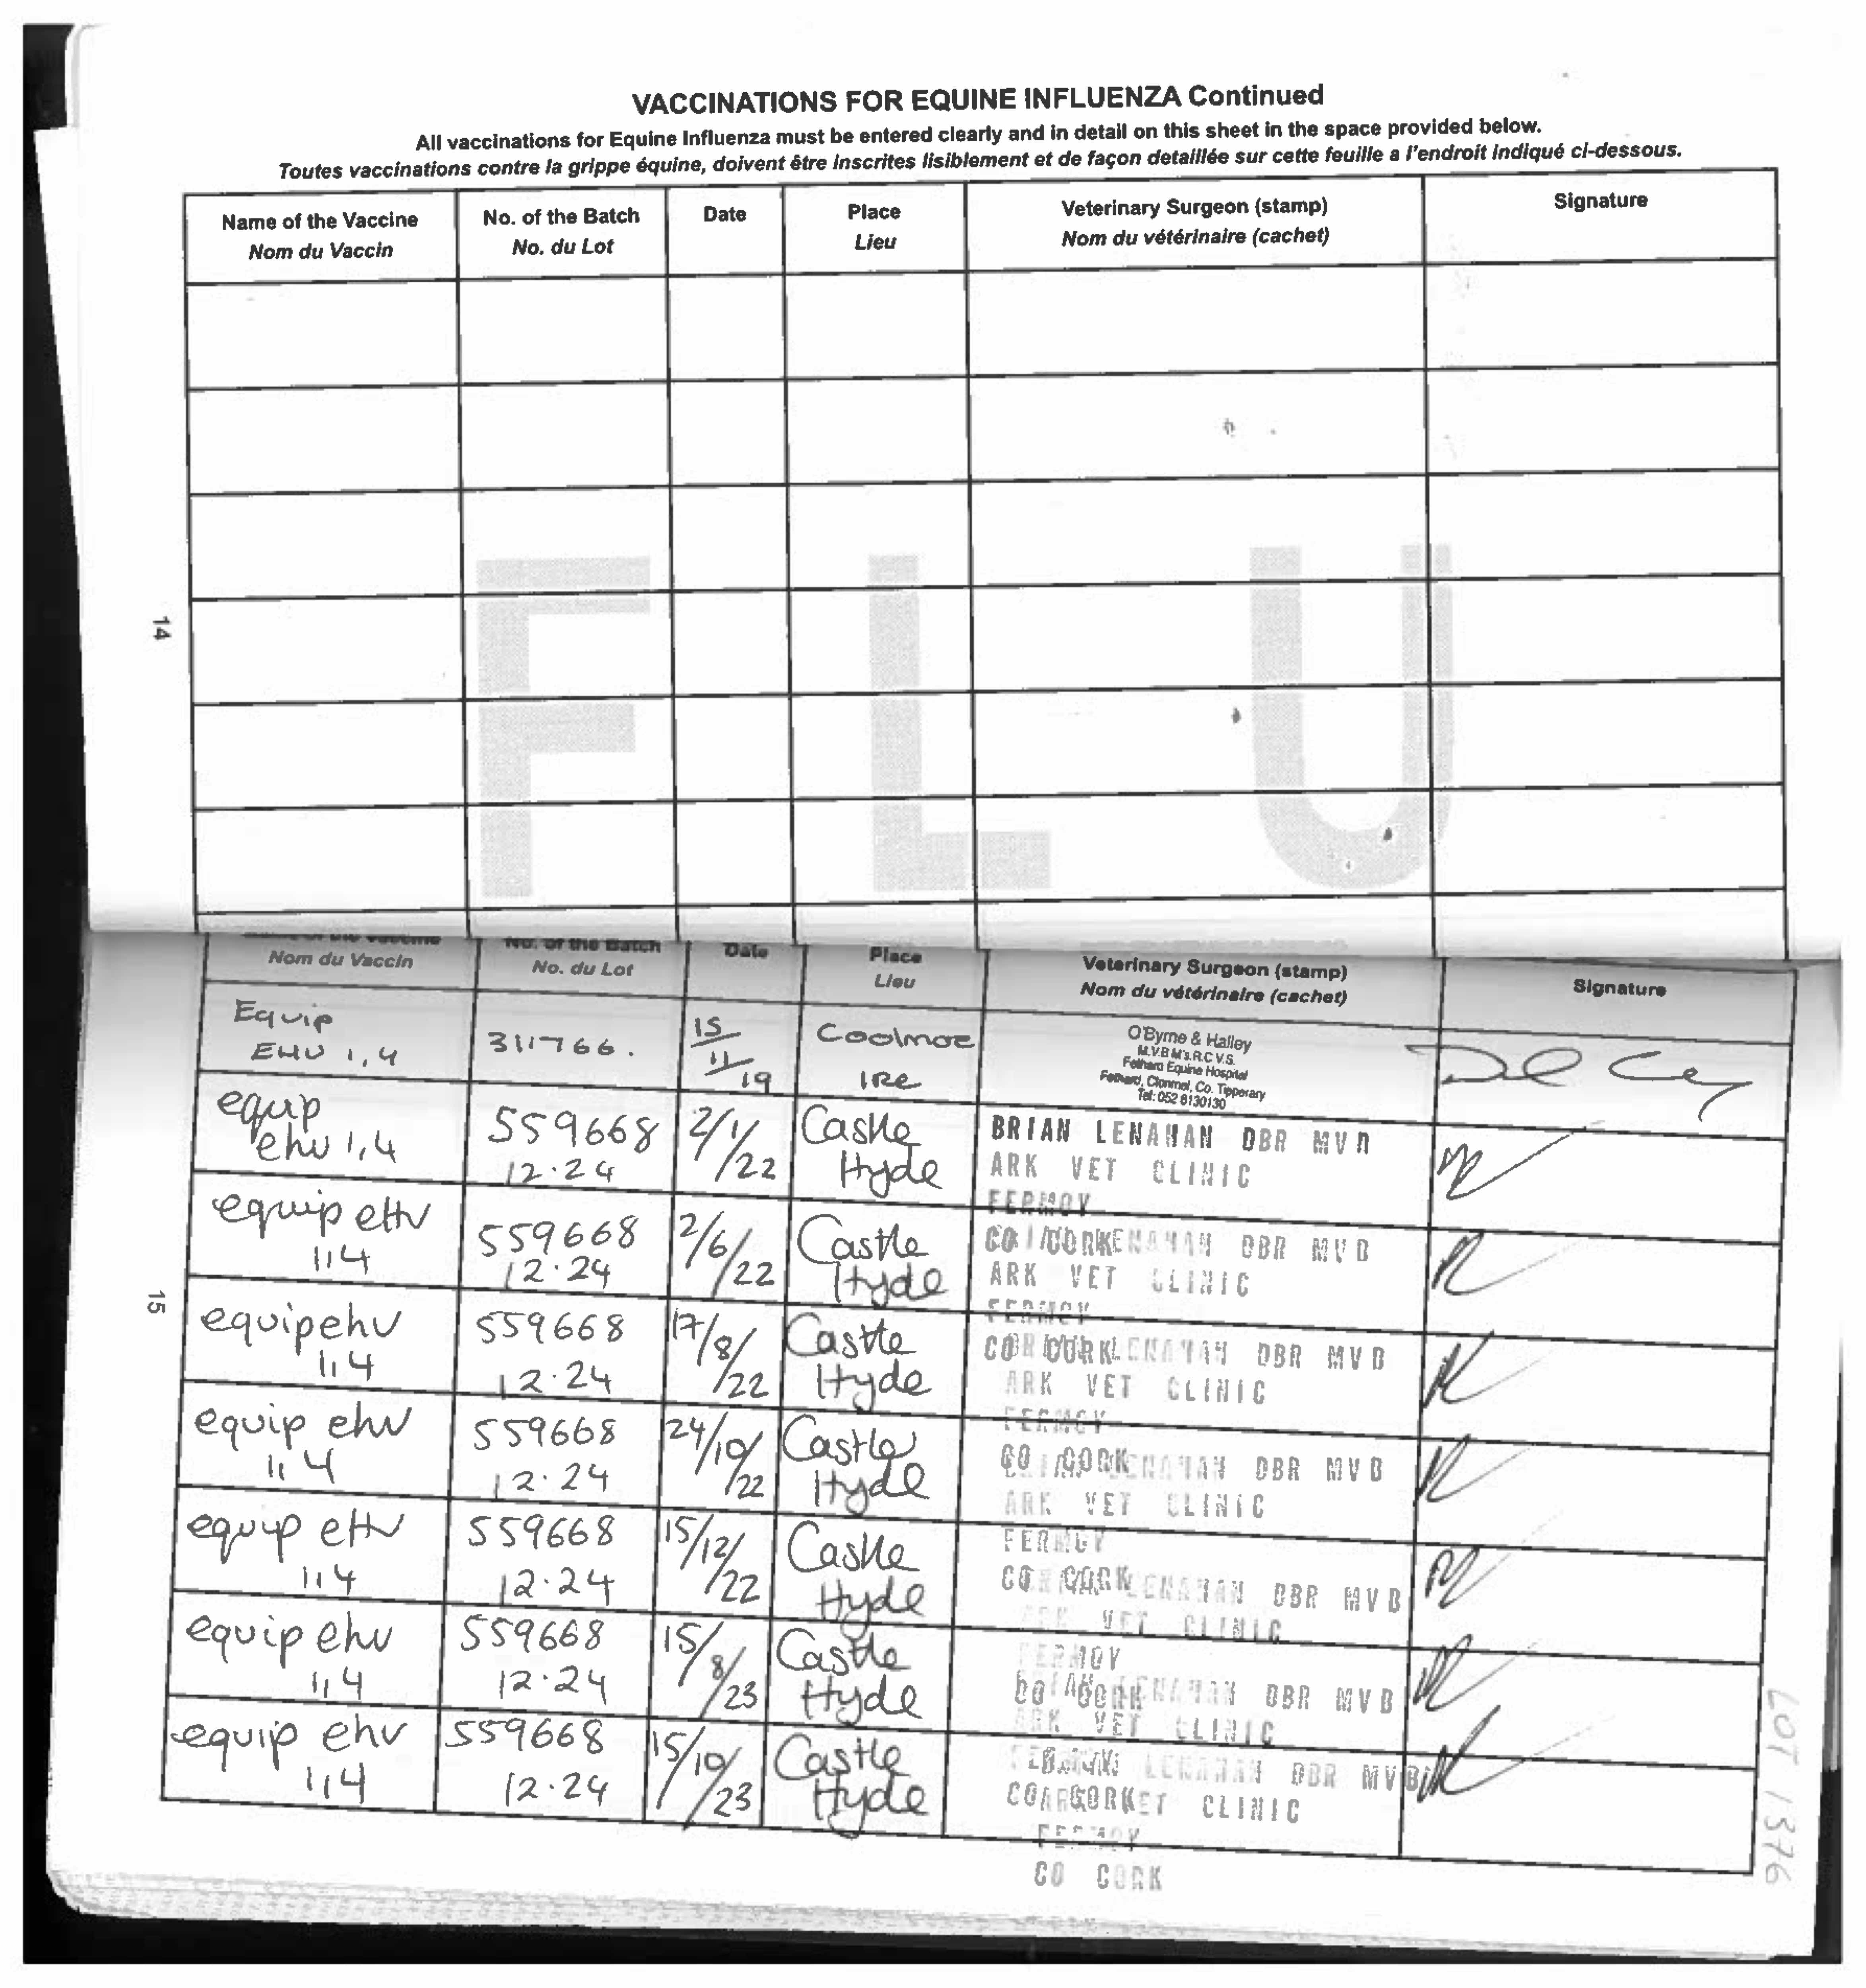 VACCINATIONS FOR EQUINE INFLUENZA Continued
All vaccinations for Equine Influenza must be entered clearly and in detail on this sheet in the space provided below.
Toutes vaccinations contre la grippe équine, doivent être inscrites lisiblement et de façon detaillée sur cette feuille a l'endroit indiqué ci-dessous.
Name of the Vaccine No. of the Batch Date Place Veterinary Surgeon (stamp) Signature
Nom du Vaccin No. du Lot Lieu Nom du vétérinaire (cachet)
FLU
14
Name of the Vaccine No. of the Batch Date Place Veterinary Surgeon (stamp) Signature
Nom du Vaccin No. du Lot Lieu Nom du vétérinaire (cachet)
Equip 311766. 15/11/19 Coolmore O'Byrne & Halley
EHV 1,4 IRE M.V.B M's.R.C.V.S.
Fethard Equine Hospital
Fethard, Clonmel, Co. Tipperary
Tel: 052 6130130
equip 559668 2/1/22 Castle BRIAN LENAHAN DBR MVB
ehv 1,4 12.24 Hyde ARK VET CLINIC
FERMOY
equip EHV 559668 2/6/22 Castle CO CORK LENAHAN DBR MVB
1,4 12.24 Hyde ARK VET CLINIC
FERMOY
equip ehv 559668 17/8/22 Castle CO CORK LENAHAN DBR MVB
1,4 12.24 Hyde ARK VET CLINIC
FERMOY
equip ehv 559668 24/10/22 Castle CO CORK LENAHAN DBR MVB
1,4 12.24 Hyde ARK VET CLINIC
FERMOY
equip EHV 559668 15/12/22 Castle CO CORK LENAHAN DBR MVB
1,4 12.24 Hyde ARK VET CLINIC
FERMOY
equip ehv 559668 15/8/23 Castle CO CORK LENAHAN DBR MVB
1,4 12.24 Hyde ARK VET CLINIC
equip ehv 559668 15/10/23 Castle LENAHAN DBR MVB
1,4 12.24 Hyde CO CORK CLINIC
FERMOY
CO CORK
15
LOT 1376